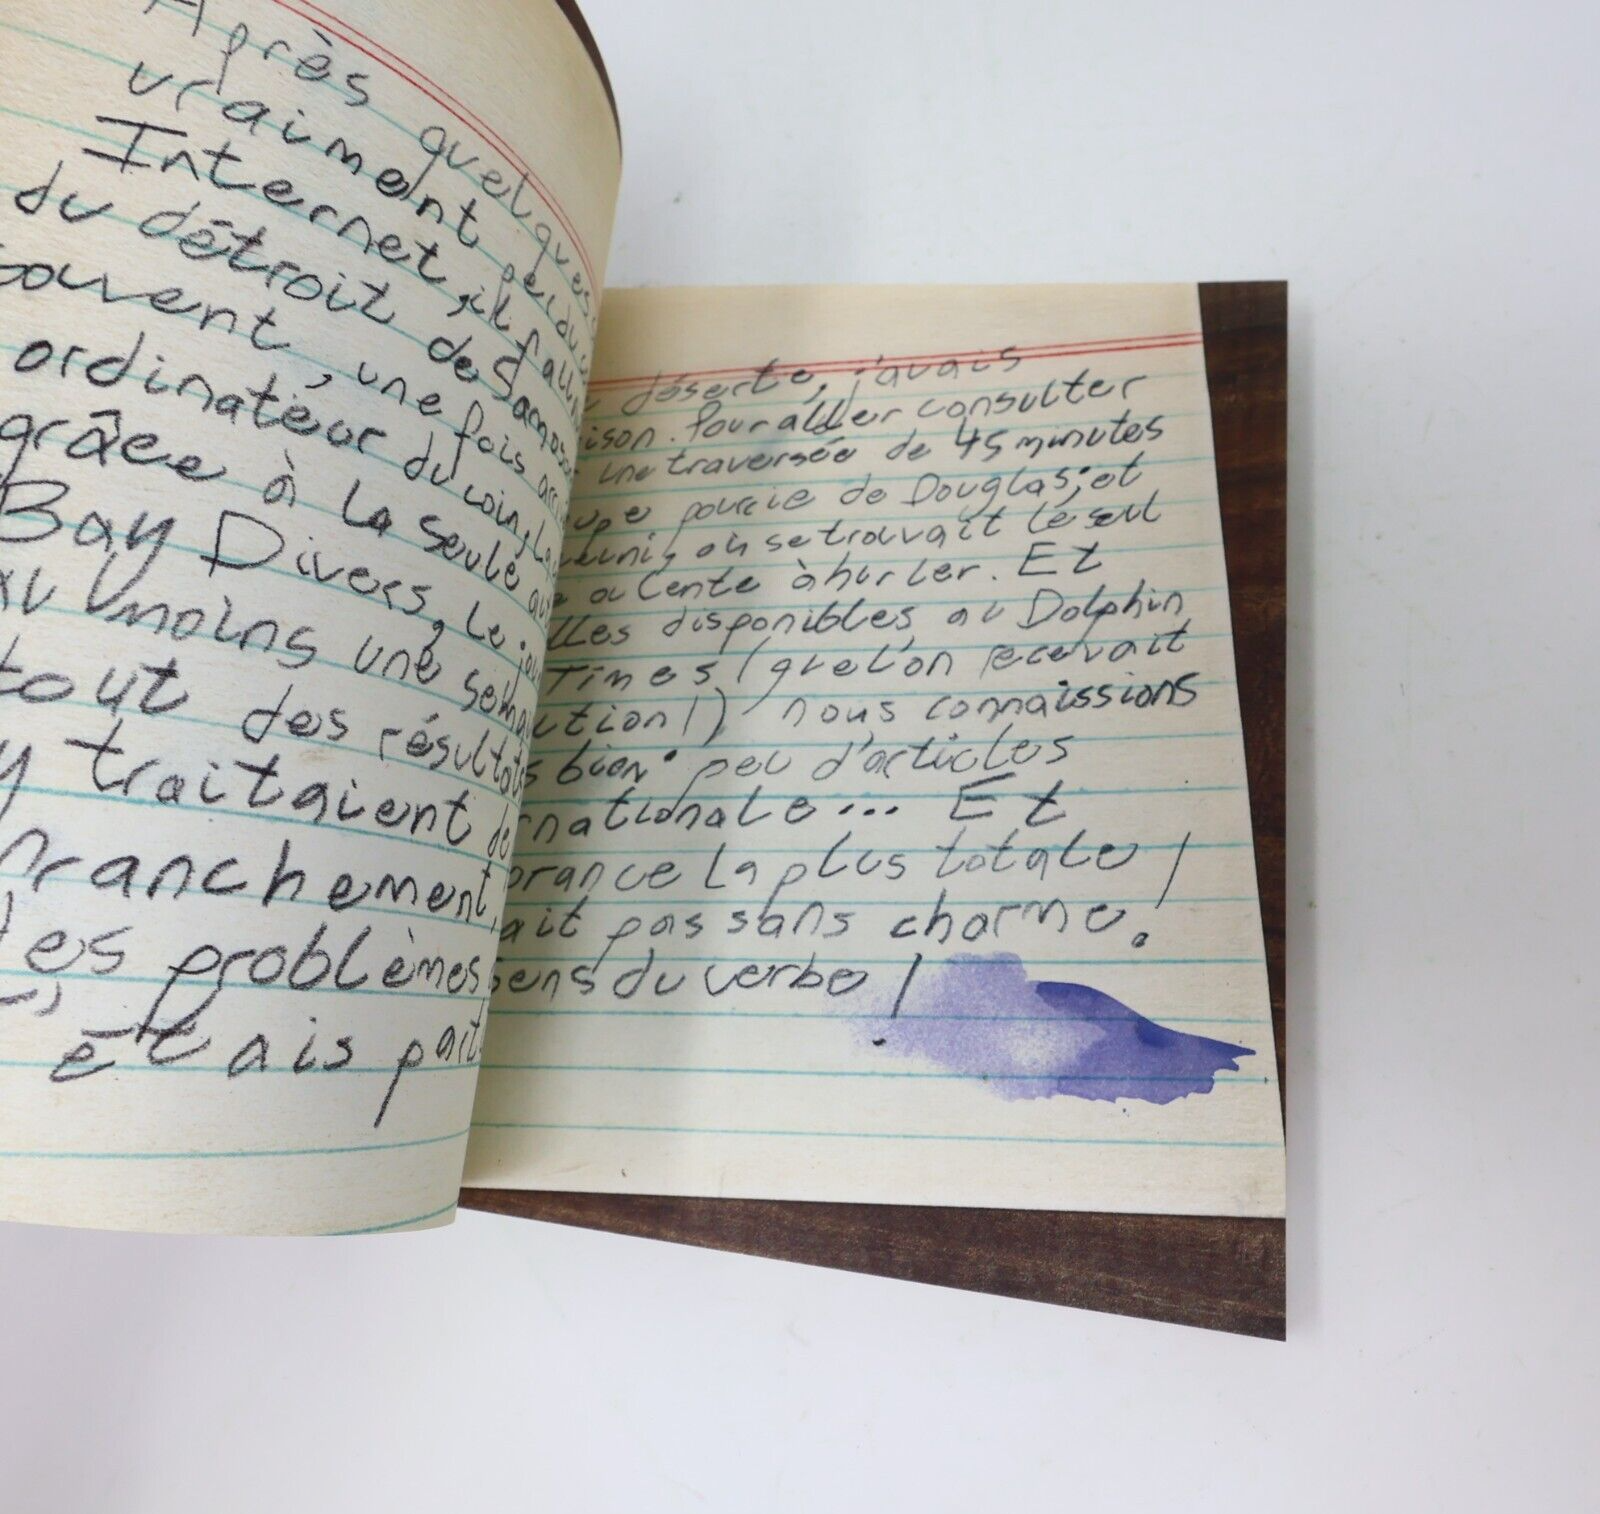 Après quelques
vraiment perdu
Internet, il fallu
du détroit de Samosa
souvent, une fois arr
ordinateur du coin, la
grâce à la seule
Bay Divers, le jou
au moins une semai
tout des résultats
y traitaient de
Franchement,
les problèmes
étais parti
déserte, j'avais
ison. Pour aller consulter
une traversée de 45 minutes
upe pourrie de Douglas; et
euni, où se trouvait le seul
e ou lente à hurler. Et
lles disponibles, au Dolphin
Times (que l'on recevait
ution!) nous connaissions
s bien peu d'articles
rnationale... Et
orance la plus totale!
ait pas sans charme.
sens du verbe!